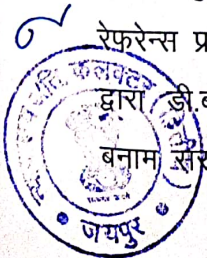 रेफरेन्स प्र
द्वारा डी.ब
बनाम
कलक्टर
जयपुर